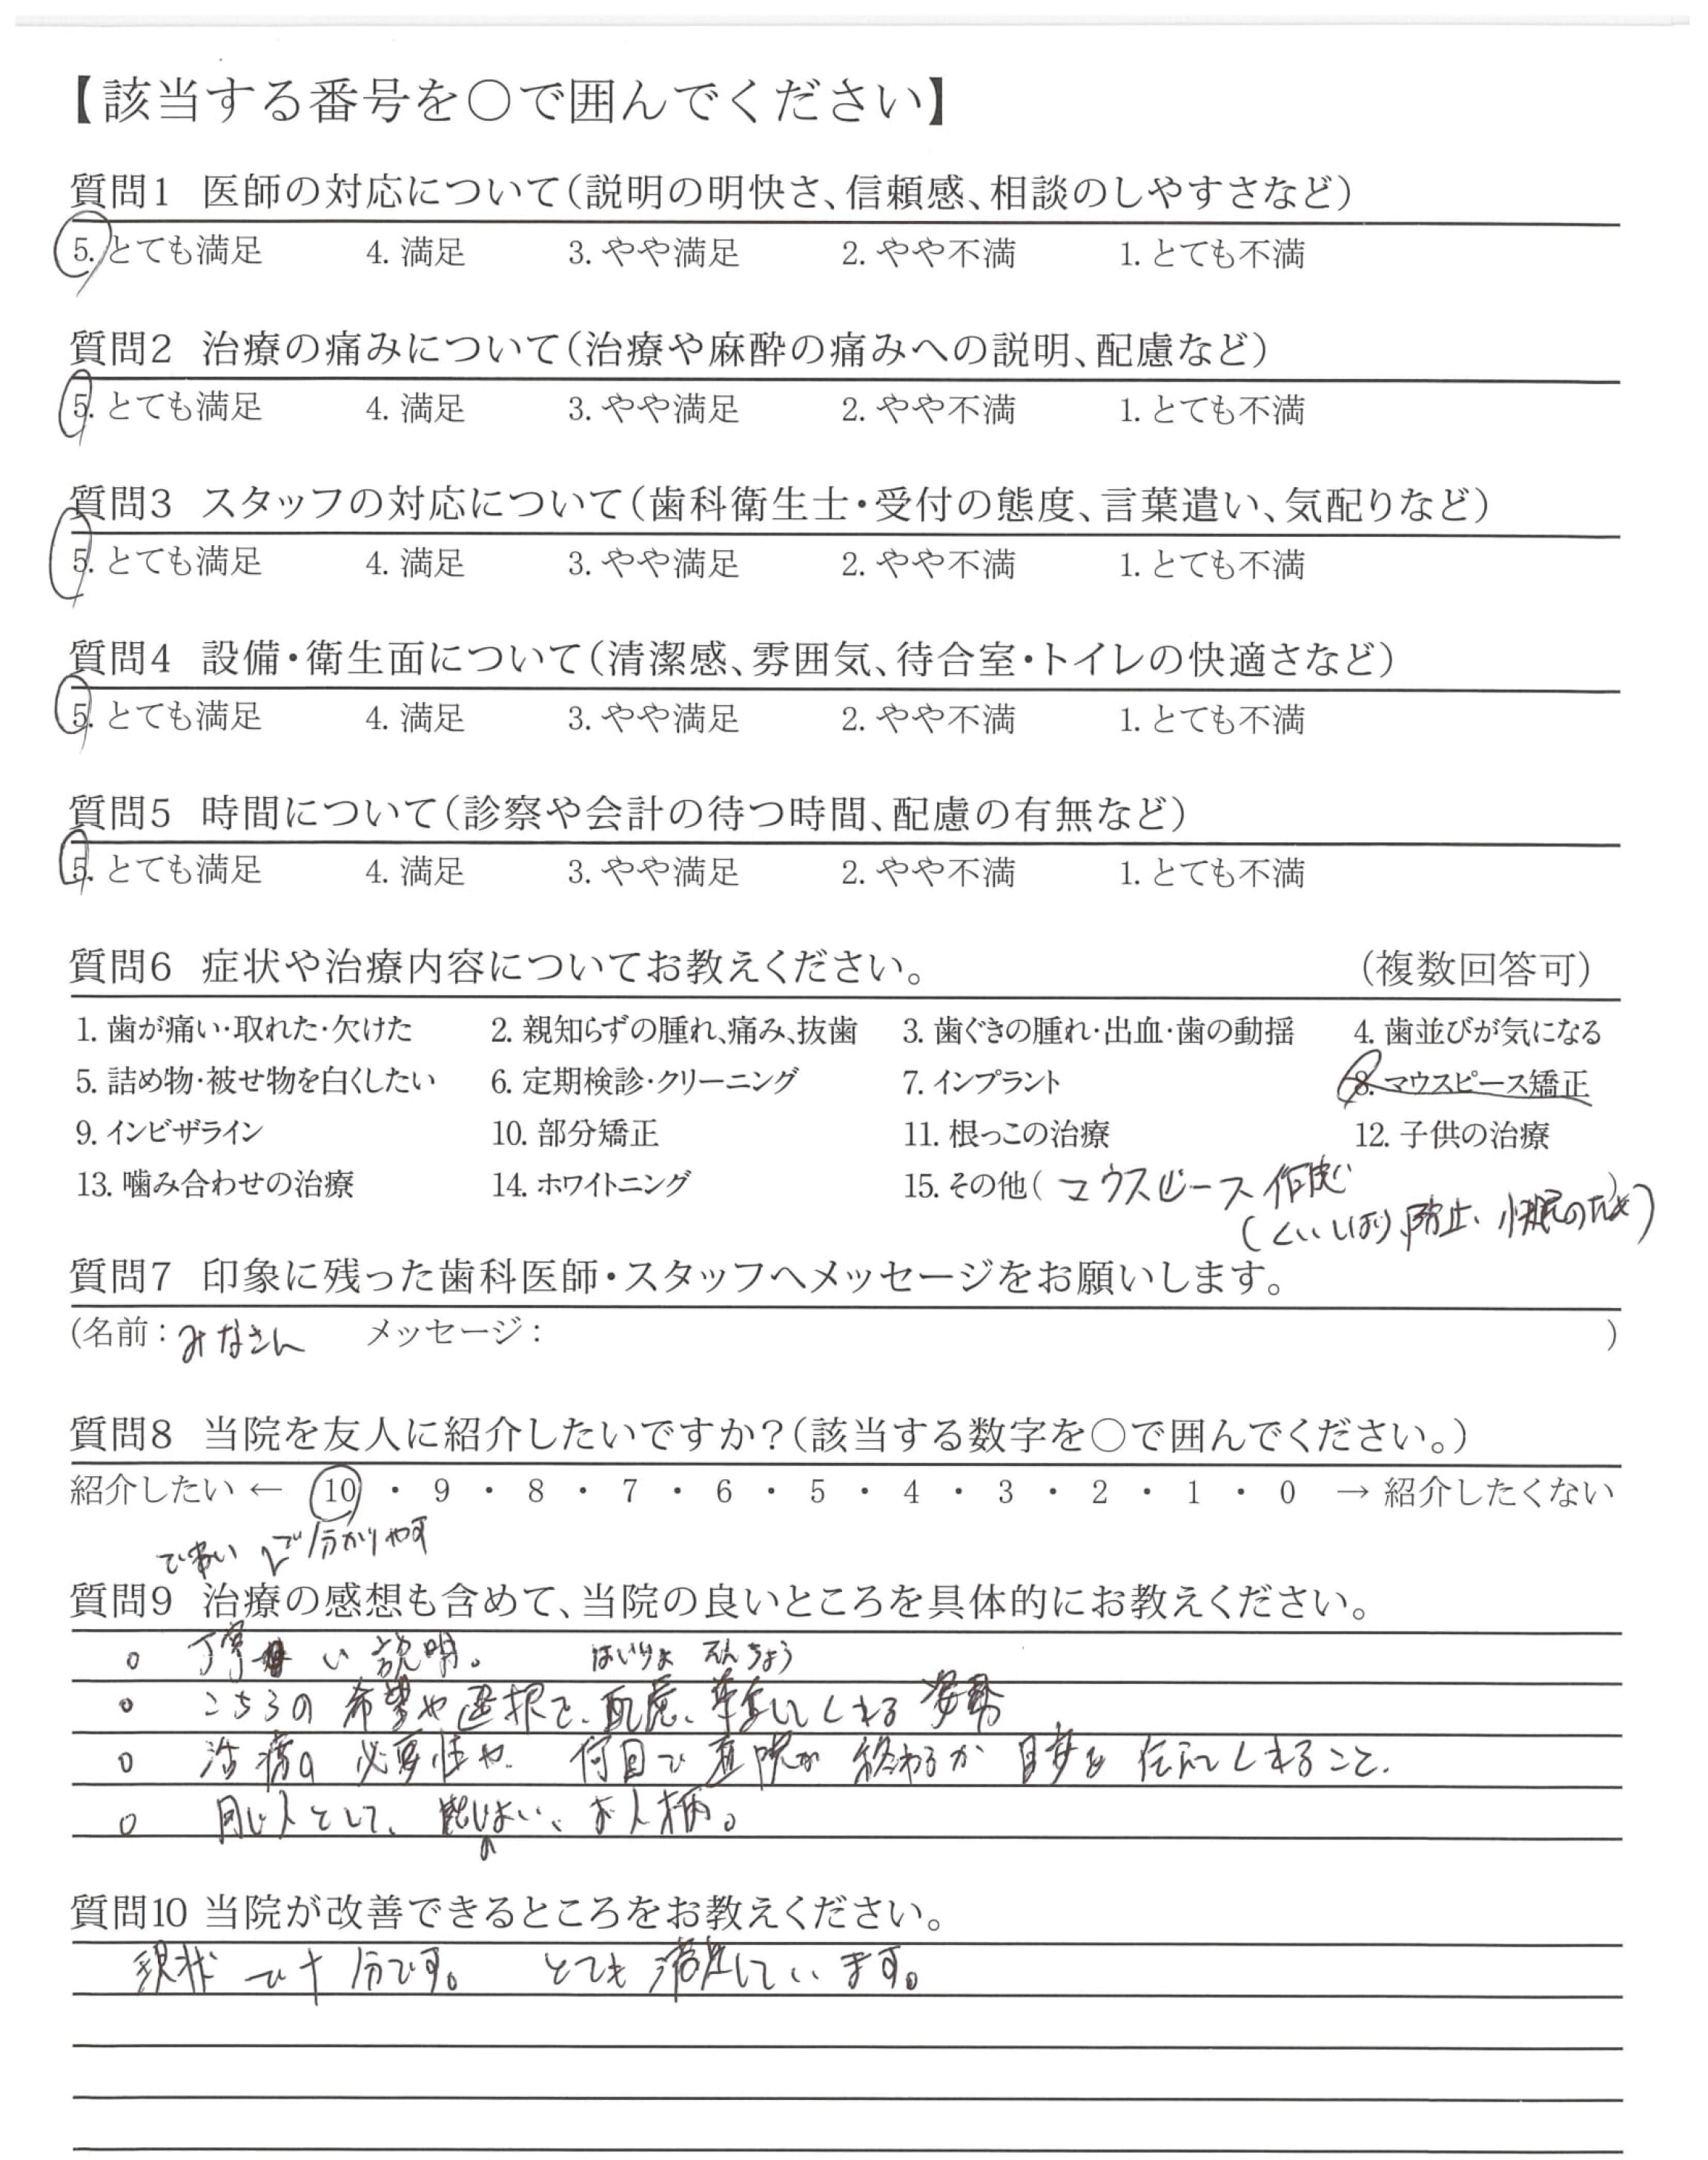 【該当する番号を○で囲んでください】
質問1 医師の対応について(説明の明快さ、信頼感、相談のしやすさなど)
5. とても満足 4. 満足 3. やや満足 2. やや不満 1. とても不満
質問2 治療の痛みについて(治療や麻酔の痛みへの説明、配慮など)
5. とても満足 4. 満足 3. やや満足 2. やや不満 1. とても不満
質問3 スタッフの対応について(歯科衛生士・受付の態度、言葉遣い、気配りなど)
5. とても満足 4. 満足 3. やや満足 2. やや不満 1. とても不満
質問4 設備・衛生面について(清潔感、雰囲気、待合室・トイレの快適さなど)
5. とても満足 4. 満足 3. やや満足 2. やや不満 1. とても不満
質問5 時間について(診察や会計の待つ時間、配慮の有無など)
5. とても満足 4. 満足 3. やや満足 2. やや不満 1. とても不満
質問6 症状や治療内容についてお教えください。 (複数回答可)
1. 歯が痛い・取れた・欠けた 2. 親知らずの腫れ、痛み、抜歯 3. 歯ぐきの腫れ・出血・歯の動揺 4. 歯並びが気になる
5. 詰め物・被せ物を白くしたい 6. 定期検診・クリーニング 7. インプラント 8. マウスピース矯正
9. インビザライン 10. 部分矯正 11. 根っこの治療 12. 子供の治療
13. 噛み合わせの治療 14. ホワイトニング 15. その他( マウスピース作成 )
(くいしばり防止、快眠のため)
質問7 印象に残った歯科医師・スタッフへメッセージをお願いします。
(名前: みなさん メッセージ: )
質問8 当院を友人に紹介したいですか?(該当する数字を○で囲んでください。)
紹介したい ← 10 ・ 9 ・ 8 ・ 7 ・ 6 ・ 5 ・ 4 ・ 3 ・ 2 ・ 1 ・ 0 → 紹介したくない
で分かりやす
質問9 治療の感想も含めて、当院の良いところを具体的にお教えください。
○ 丁寧 い 説明。 はいりょ そんちょう
○ こちらの 希望や選択を、配慮、尊重してくれる 姿勢
○ 治療の 必要性や 何回で 通院が 終わるか 目安を 伝えてくれること。
○ 同じ人として、 お人柄。
質問10 当院が改善できるところをお教えください。
現状で十分です。 とても満足しています。